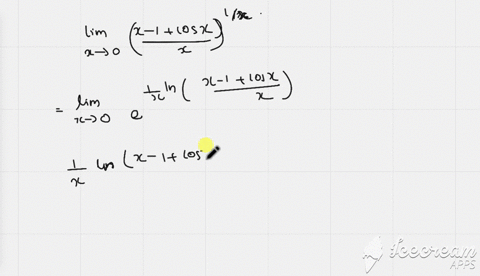 lim x→0 ((x-1+cosx)/x)^(1/x)
= lim x→0 e^(1/x ln((x-1+cosx)/x))
1/x ln(x-1+cos
Icecream
APPS